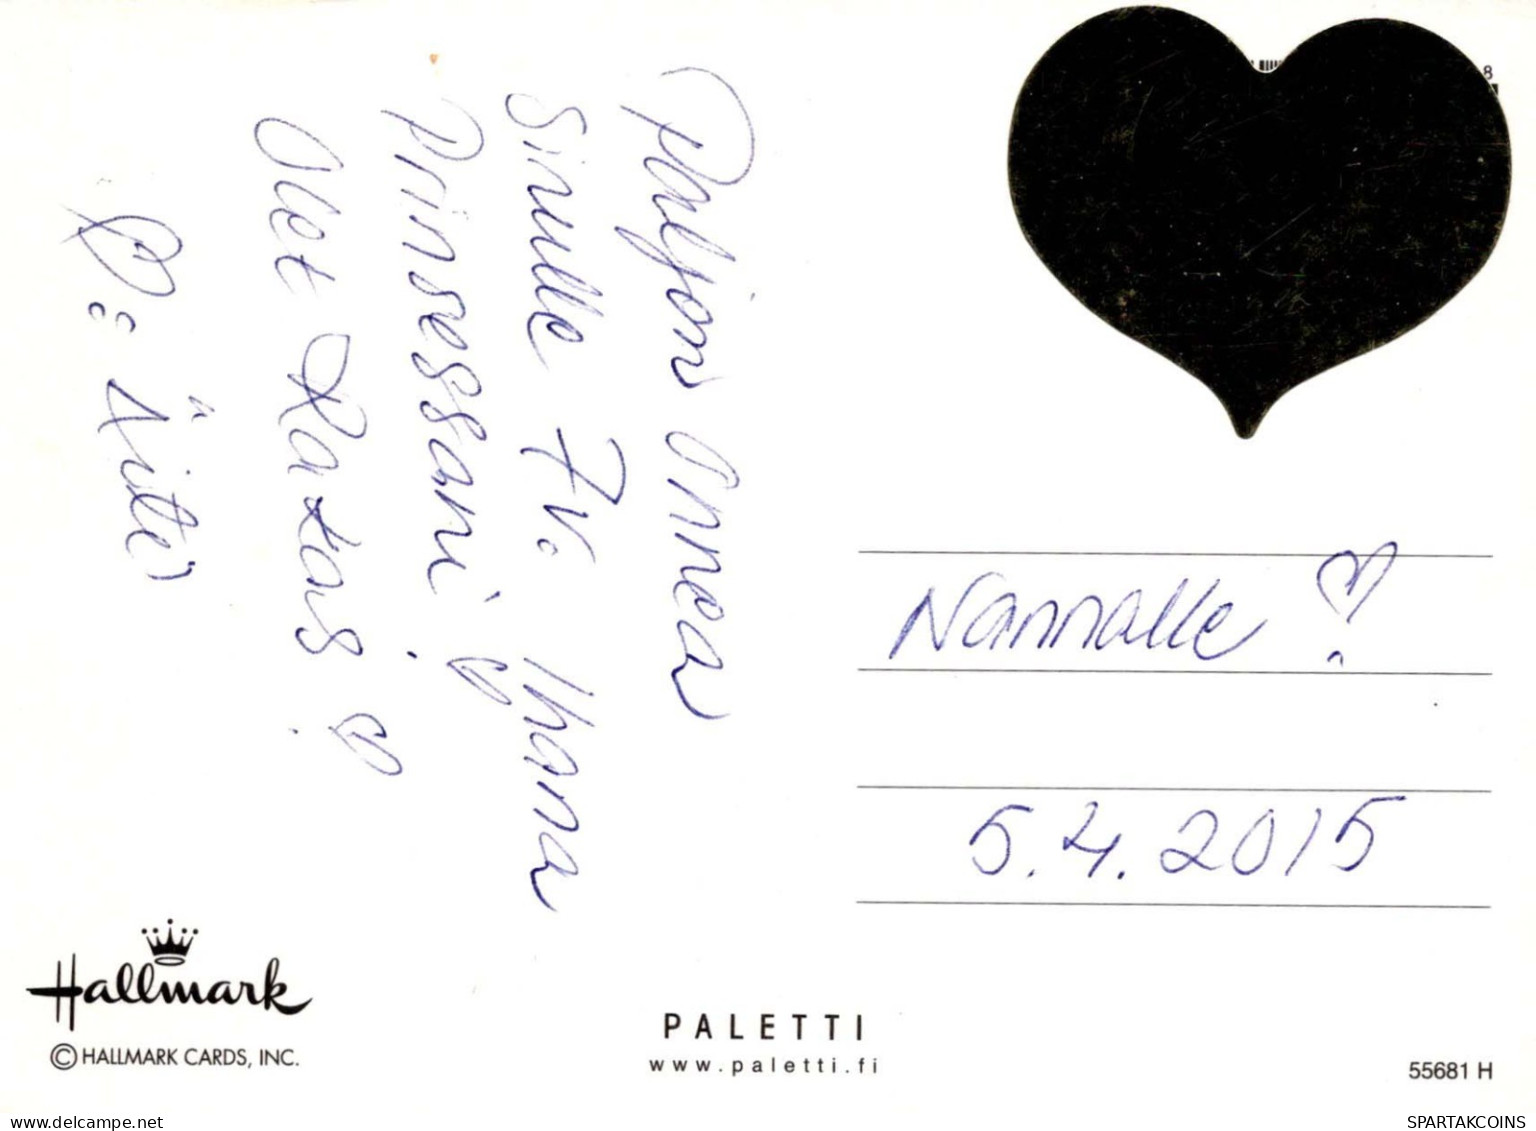 Paljon Onnea
Sinulle 7v. Ihana
Prinsessani! ♡
Olet Rakas! ♡
♡: Äitee
Nannalle ♡!
5.4.2015
8
Hallmark
© HALLMARK CARDS, INC.
PALETTI
www.paletti.fi
55681 H
oldthing.com
SPARTAKCOINS